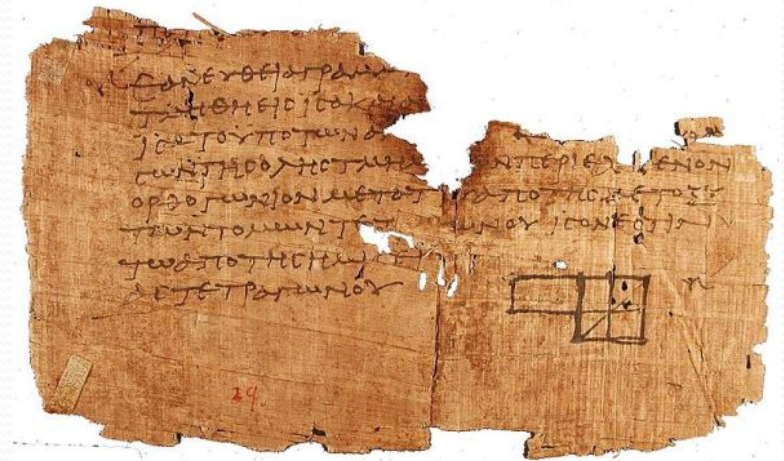 ΕΑΝ ΕΥΘΕΙΑ ΓΡΑΜΜ
ΤΜΗΘΗ ΕΙΣ ΙΣΑ ΚΑΙ Α
ΙΣΑ ΤΟ ΥΠΟ ΤΩΝ Α
ΣΩΝ ΤΗΣ ΟΛΗΣ ΤΜΗΜ ΩΝ ΠΕΡΙΕΧ ΜΕΝΟΝ
ΟΡΘΟΓΩΝΙΟΝ ΜΕΤΟ Τ ΑΠΟ ΤΗΣ ΜΕΤΟΞΥ
ΤΩΝ ΤΟΜΩΝ ΤΕΤ ΩΝΟΥ ΙΣΟΝ ΕΣΤΙΝ
ΤΩ ΑΠΟ ΤΗΣ ΗΜΙΣΕΙ
ΑΣ ΤΕΤΡΑΓΩΝΟΥ
29